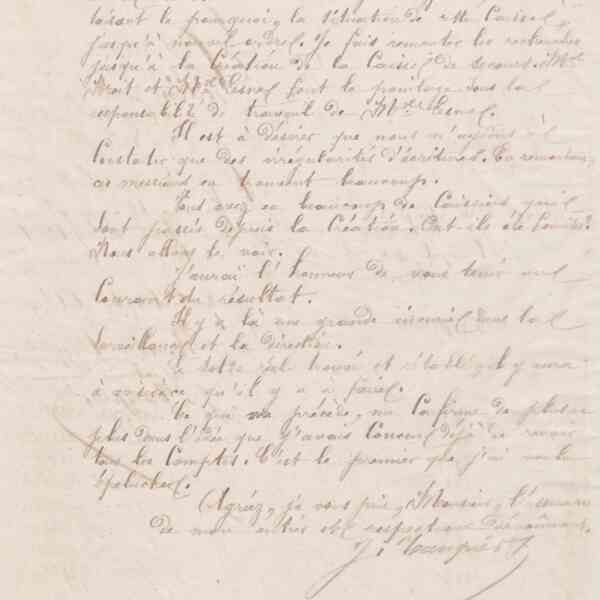 faisant le pourquoi, la situation de cette Caisse
jusqu'à nouvel ordre. Je fais remonter les recherches
jusqu'à la Création de la Caisse de secours. Mr
et Mr Lesnel font le pointage sous la
responsabilité de travail de Mr Lesnel.
Il est à désirer que nous n'ayions à
Constater que des irrégularités d'écritures. En remontant,
ces messieurs en trouvent beaucoup.
Vous avez eu beaucoup de Caissiers qui
sont passés depuis la Création. Ont-ils été
Nous allons le voir.
J'aurai l'honneur de vous tenir au
Courant du résultat.
Il y a là une grande incurie dans la
surveillance et la direction.
travail est rétabli, il y aura
à qu'il y a à faire.
Ce qui précède, me Confirme de plus en
plus dans l'idée que j'avais Conçue déjà de revoir
tous les Comptes. C'est le premier que j'ai voulu
éplucher.
Agréez, je vous prie, Monsieur, l'assurance
de mon entier et respectueux dévoûment.
J.